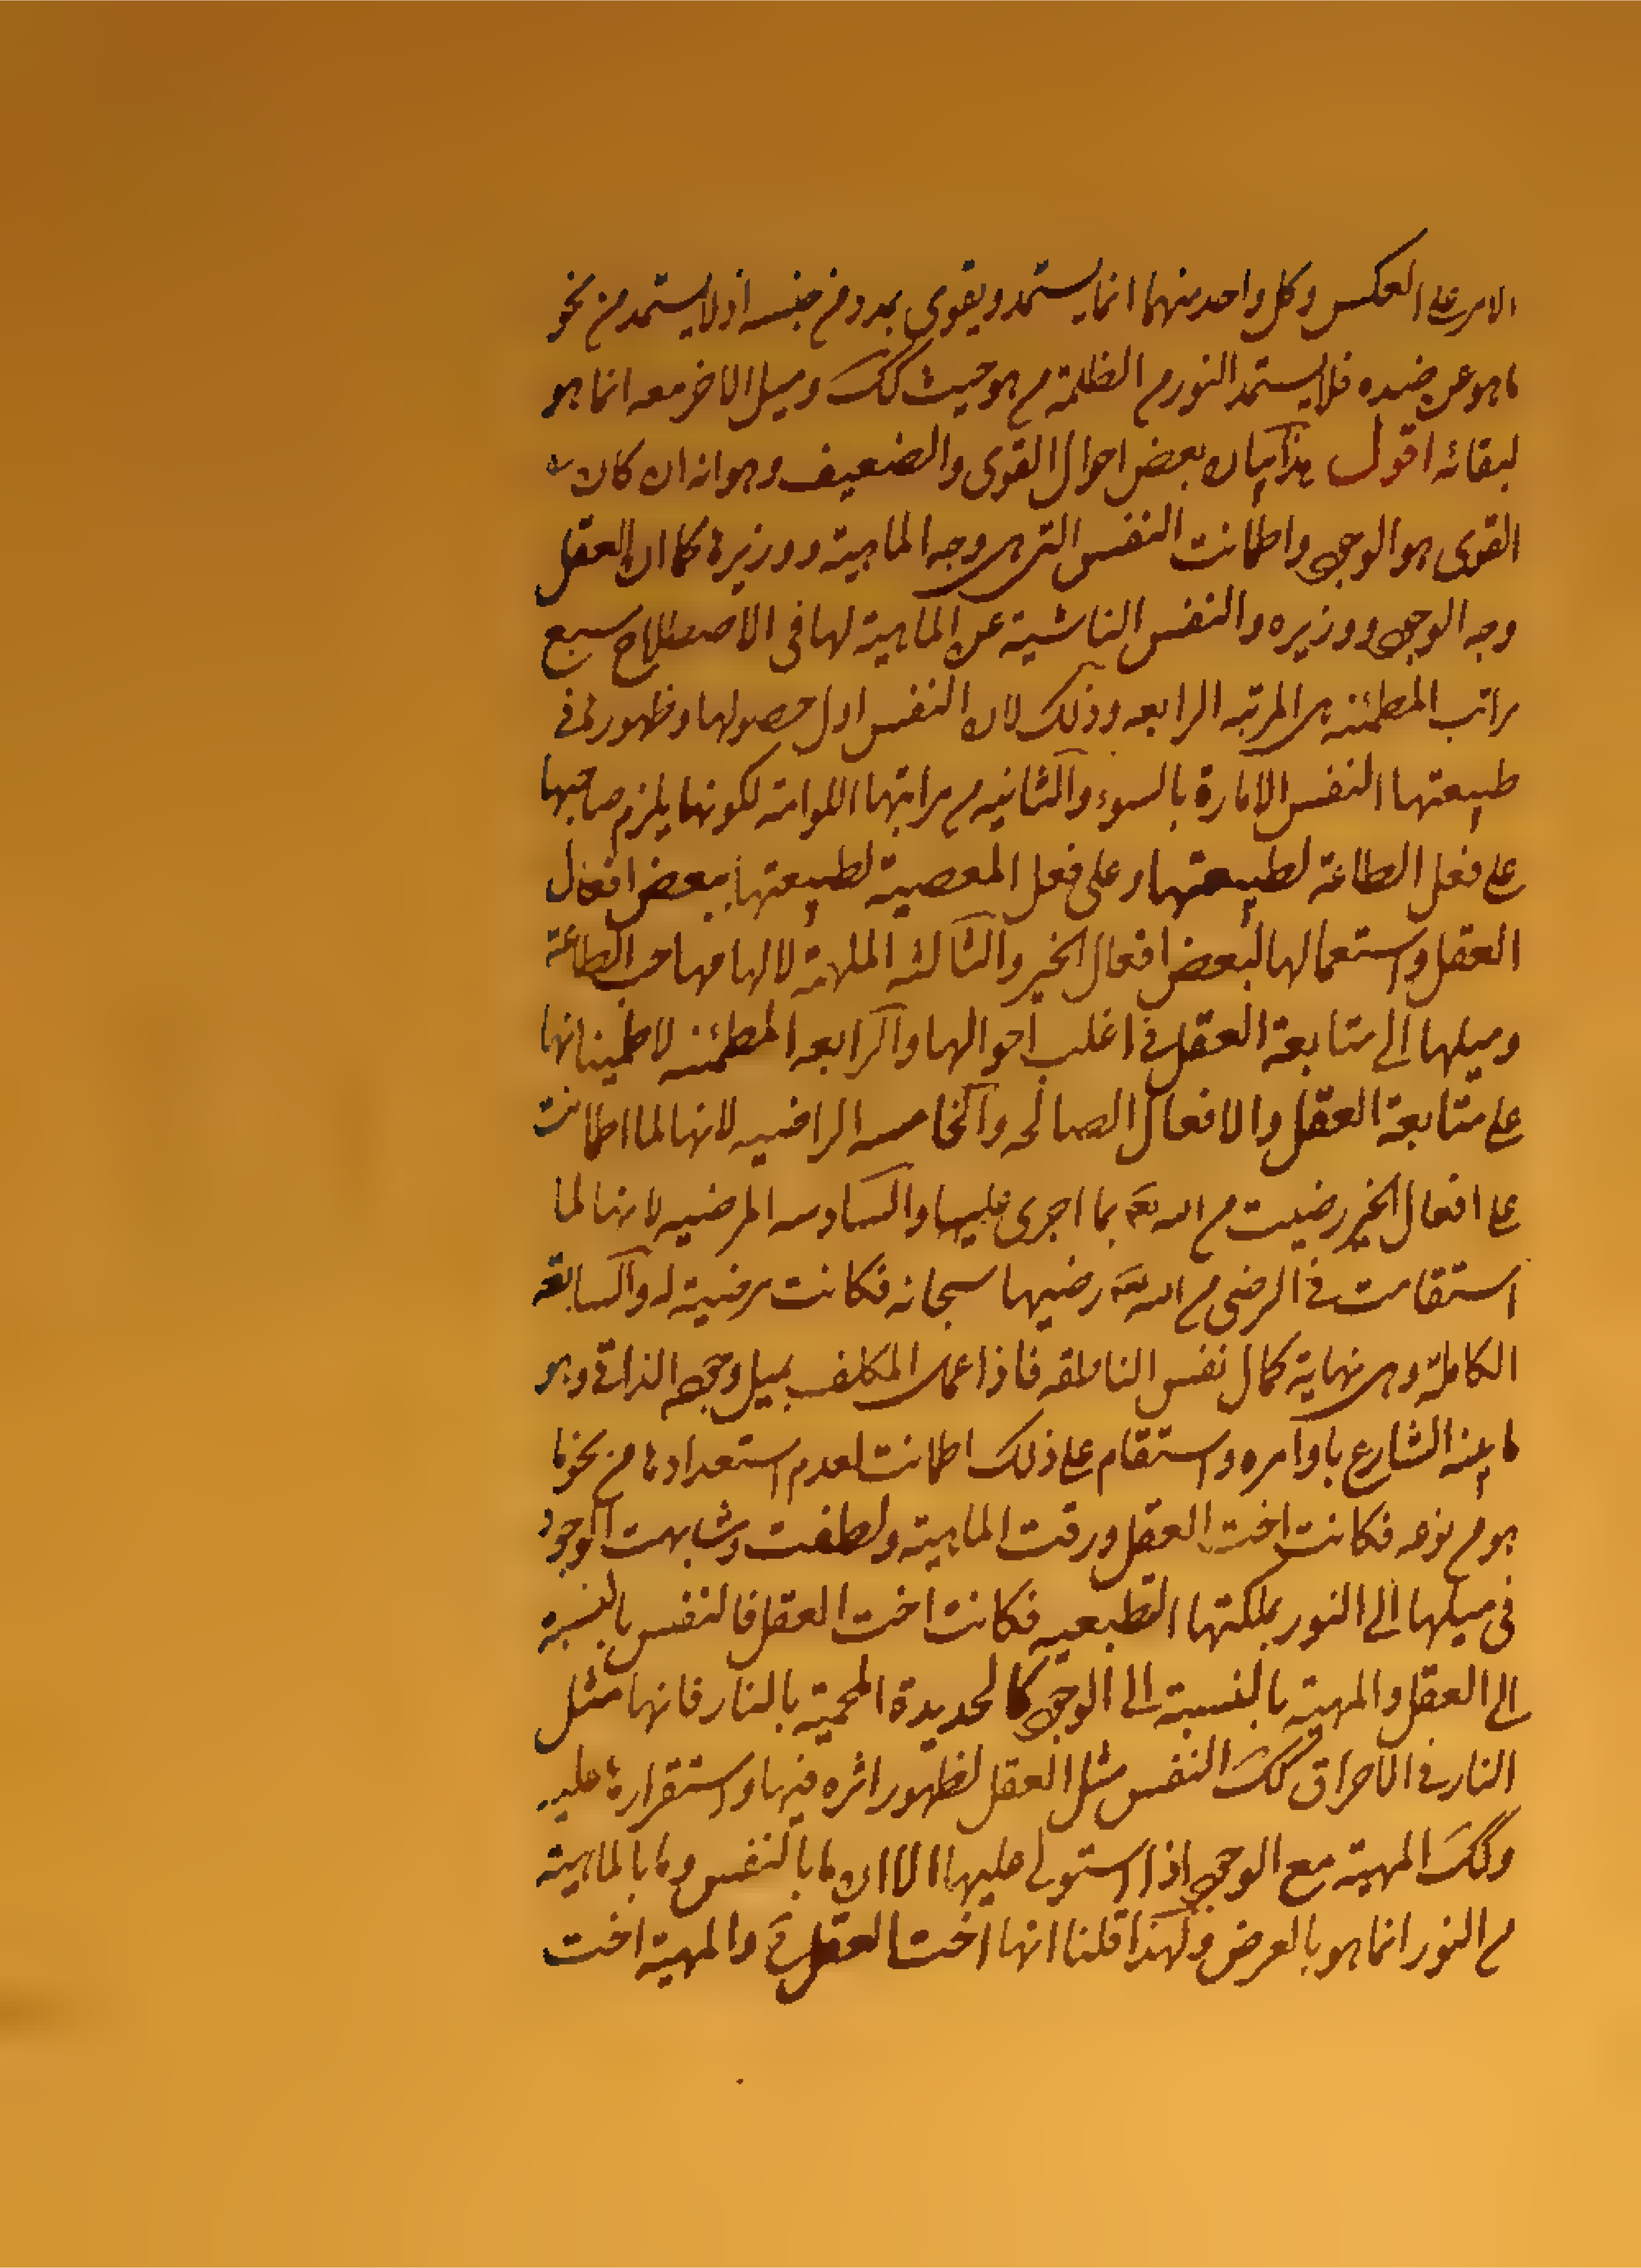 الامر على العكس وكل واحد منهما انما يستمد ويقوى بمدد من جنسه اذ لا يستمد من نحو
ما هو عن ضده فلا يستمد النور من الظلمة من هو حيث كك وميل الاخر معه انما هو
لبقائه اقول هذا بيان بعض احوال القوى والضعيف وهو انه ان كان
القوى هو الوجود واطمانت النفس التى هى وجه الماهية ووزيرها كما ان العقل
وجه الوجود ووزيره والنفس الناشية عن الماهية لها فى الاصطلاح سبع
مراتب المطمئنه هى المرتبه الرابعه وذلك لان النفس اول حصولها وظهورها فى
طبيعتها النفس الامارة بالسوء والثانيه من مراتبها اللوامة لكونها يلزم صاحبها
على فعل الطاعة لطبيعتها وعلى فعل المعصية لطبيعتها ببعض افعال
العقل واستعمالها لبعض افعال الخير والثالثه الملهمة لالهامها حب الطاعة
وميلها الى متابعة العقل فى اغلب احوالها والرابعه المطمئنه لاطمينانها
على متابعة العقل والافعال الصالحه والخامسه الراضيه لانها لما اطمانت
على افعال الخير رضيت من الله تع بما اجرى عليها والسادسه المرضيه لانها لما
استقامت فى الرضى من الله تع رضيها سبحانه فكانت مرضية له والسابعه
الكاملة وهى نهاية كمال نفس الناطقه فاذا عمل المكلف بميل وجوده الذاتى وهو
ما بينه الشارع باوامره واستقام على ذلك اطمانت لعدم استعدادها من نحو ما
هو من نوعه فكانت اخت العقل ورقت الماهية ولطفت وشابهت الوجود
فى ميلها الى النور بملكتها التطبعيه فكانت اخت العقل فالنفس بالنسبة
الى العقل والمهية بالنسبة الى الوجود كالحديدة المحمية بالنار فانها مثل
النار فى الاحراق كك النفس مثل العقل لظهور اثره فيها واستقرارها عليه
وكك المهية مع الوجود اذا استولى عليها الا ان ما بالنفس وما بالماهية
من النور انما هو بالعرض ولهذا قلنا انها اخت العقل والمهية اخت